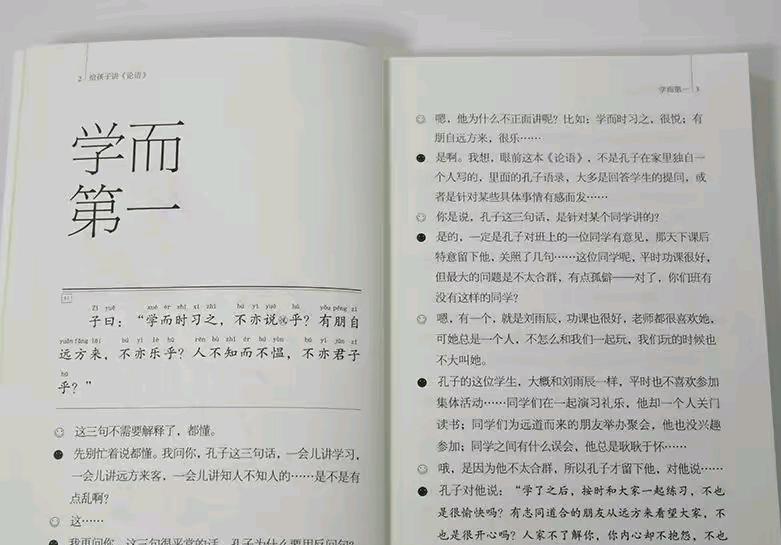 2 给孩子讲《论语》
学而
第一
1·1
Zǐ yuē xué ér shí xí zhī bú yì yuè hū yǒu péng zì
子曰：“学而时习之，不亦说悦乎？有朋自
yuǎn fāng lái bú yì lè hū rén bù zhī ér bú yùn bú yì jūn zǐ
远方来，不亦乐乎？人不知而不愠，不亦君子
hū
乎？”
这三句不需要解释了，都懂。
先别忙着说都懂。我问你，孔子这三句话，一会儿讲学习，
一会儿讲远方来客，一会儿讲知人不知人的……是不是有
点乱啊？
这……
我再问你，这三句很平常的话，孔子为什么要用反问句？
学而第一 3
嗯，他为什么不正面讲呢？比如：学而时习之，很悦；有
朋自远方来，很乐……
是啊。我想，眼前这本《论语》，不是孔子在家里独自一
个人写的，里面的孔子语录，大多是回答学生的提问，或
者是针对某些具体事情有感而发……
你是说，孔子这三句话，是针对某个同学讲的？
是的，一定是孔子对班上的一位同学有意见，那天下课后
特意留下他，关照了几句……这位同学呢，平时功课很好，
但最大的问题是不太合群，有点孤僻——对了，你们班有
没有这样的同学？
嗯，有一个，就是刘雨辰，功课也很好，老师都很喜欢她，
可她总是一个人，不怎么和我们一起玩，我们玩的时候也
不大叫她。
孔子的这位学生，大概和刘雨辰一样，平时也不喜欢参加
集体活动……同学们在一起演习礼乐，他却一个人关门
读书；同学们为远道而来的朋友举办聚会，他也没兴趣
参加；同学之间有什么误会，他总是耿耿于怀……
哦，是因为他不太合群，所以孔子才留下他，对他说……
孔子对他说：“学了之后，按时和大家一起练习，不也
是很愉快吗？有志同道合的朋友从远方来看望大家，不
也是很开心吗？人家不了解你，你内心却不抱怨，不也